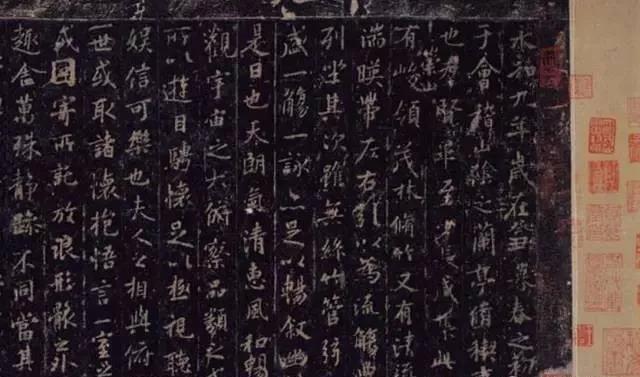 永和九年歲在癸丑暮春之初
于會稽山陰之蘭亭脩稧事
也群賢畢至少長咸集此
崇山
有峻領茂林脩竹又有清流
湍暎帶左右引以為流觴曲
列坐其次雖無絲竹管弦
盛一觴一詠亦足以暢敘幽
是日也天朗氣清惠風和暢
觀宇宙之大俯察品類之盛
所以遊目騁懷足以極視聽
娛信可樂也夫人之相與俯
一世或取諸懷抱悟言一室之
或因寄所託放浪形骸之外
趣舍萬殊靜躁不同當其